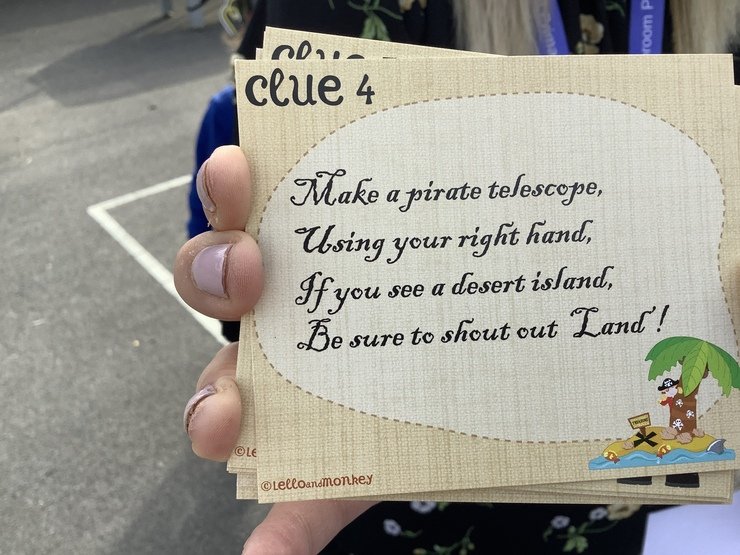 clue
room P
clue 4
Make a pirate telescope,
Using your right hand,
If you see a desert island,
Be sure to shout out 'Land'!
©Le
©LelloandMonkey